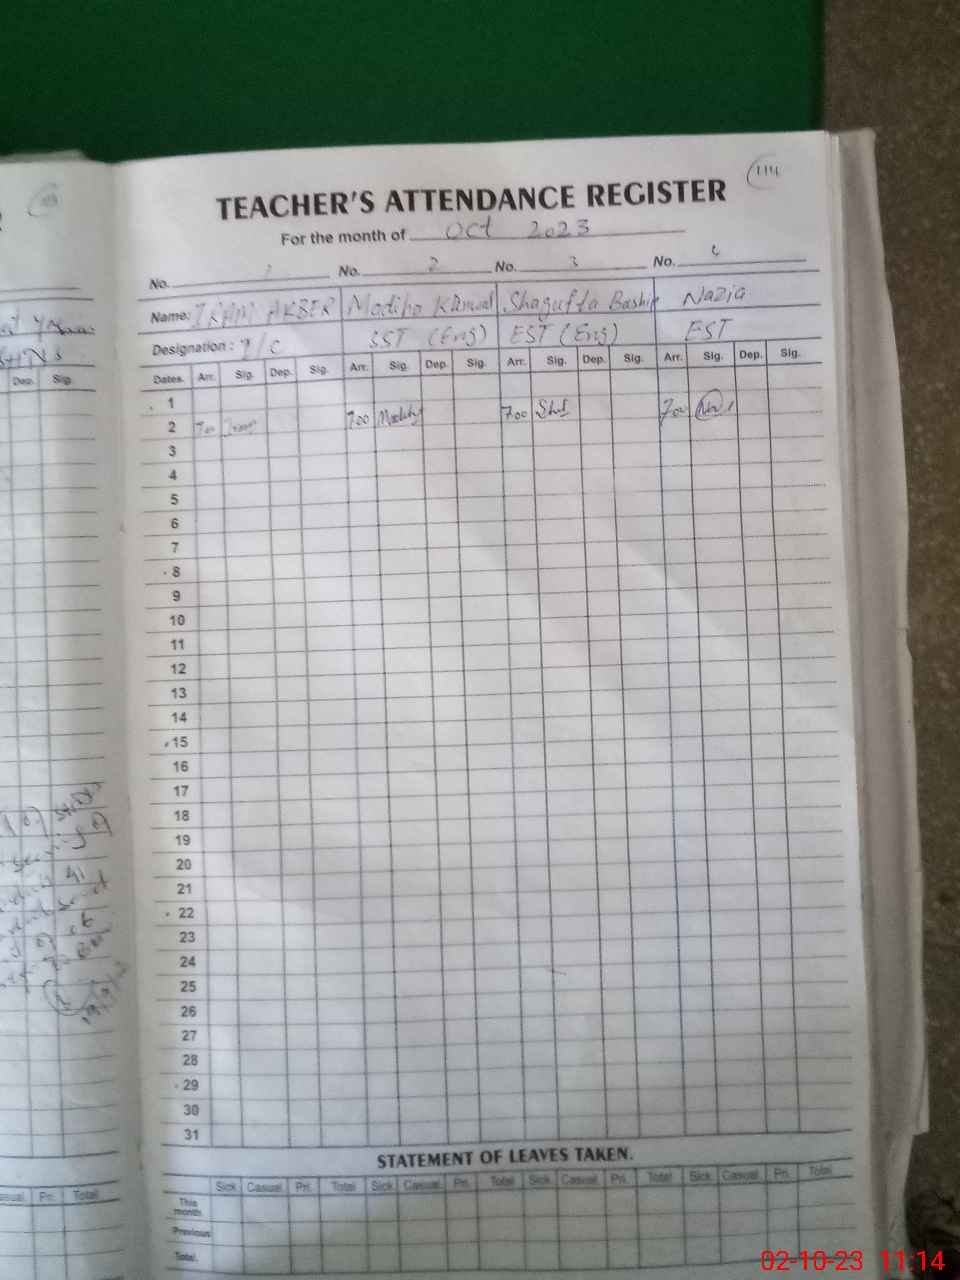 114
TEACHER'S ATTENDANCE REGISTER
For the month of Oct 2023
No. 1 No. 2 No. 3 No. 4
Name: IRAM AKBER Madiha Kanwal Shagufta Bashir Nazia
Designation: I/C SST (Eng) EST (Eng) EST
Dates. Arr. Sig. Dep. Sig. Arr. Sig. Dep. Sig. Arr. Sig. Dep. Sig. Arr. Sig. Dep. Sig.
1
2 7.00 7.00 7.00 7.00
3
4
5
6
7
8
9
10
11
12
13
14
15
16
17
18
19
20
21
22
23
24
25
26
27
28
29
30
31
STATEMENT OF LEAVES TAKEN.
Sick Casual Pri. Total Sick Casual Pri. Total Sick Casual Pri. Total Sick Casual Pri. Total
This month
Previous
Total.
Dep. Sig.
Pri. Total
02-10-23 11:14